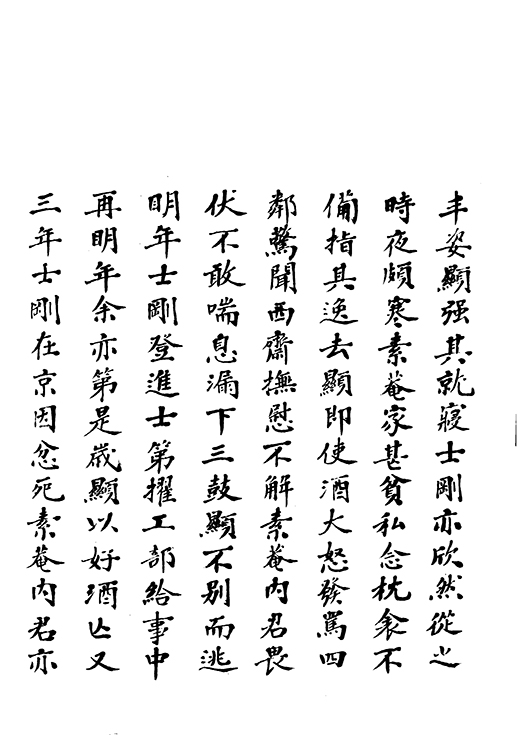 丰姿顯强其就寢士剛亦欣然從之
時夜頗寒素菴家甚貧私念枕衾不
備指其逸去顯即使酒大怒發罵四
鄰驚聞西齋撫慰不解素菴內君畏
伏不敢喘息漏下三鼓顯不別而逃
明年士剛登進士第擢工部給事中
再明年余亦第是歲顯以好酒亡又
三年士剛在京因忿死素菴內君亦